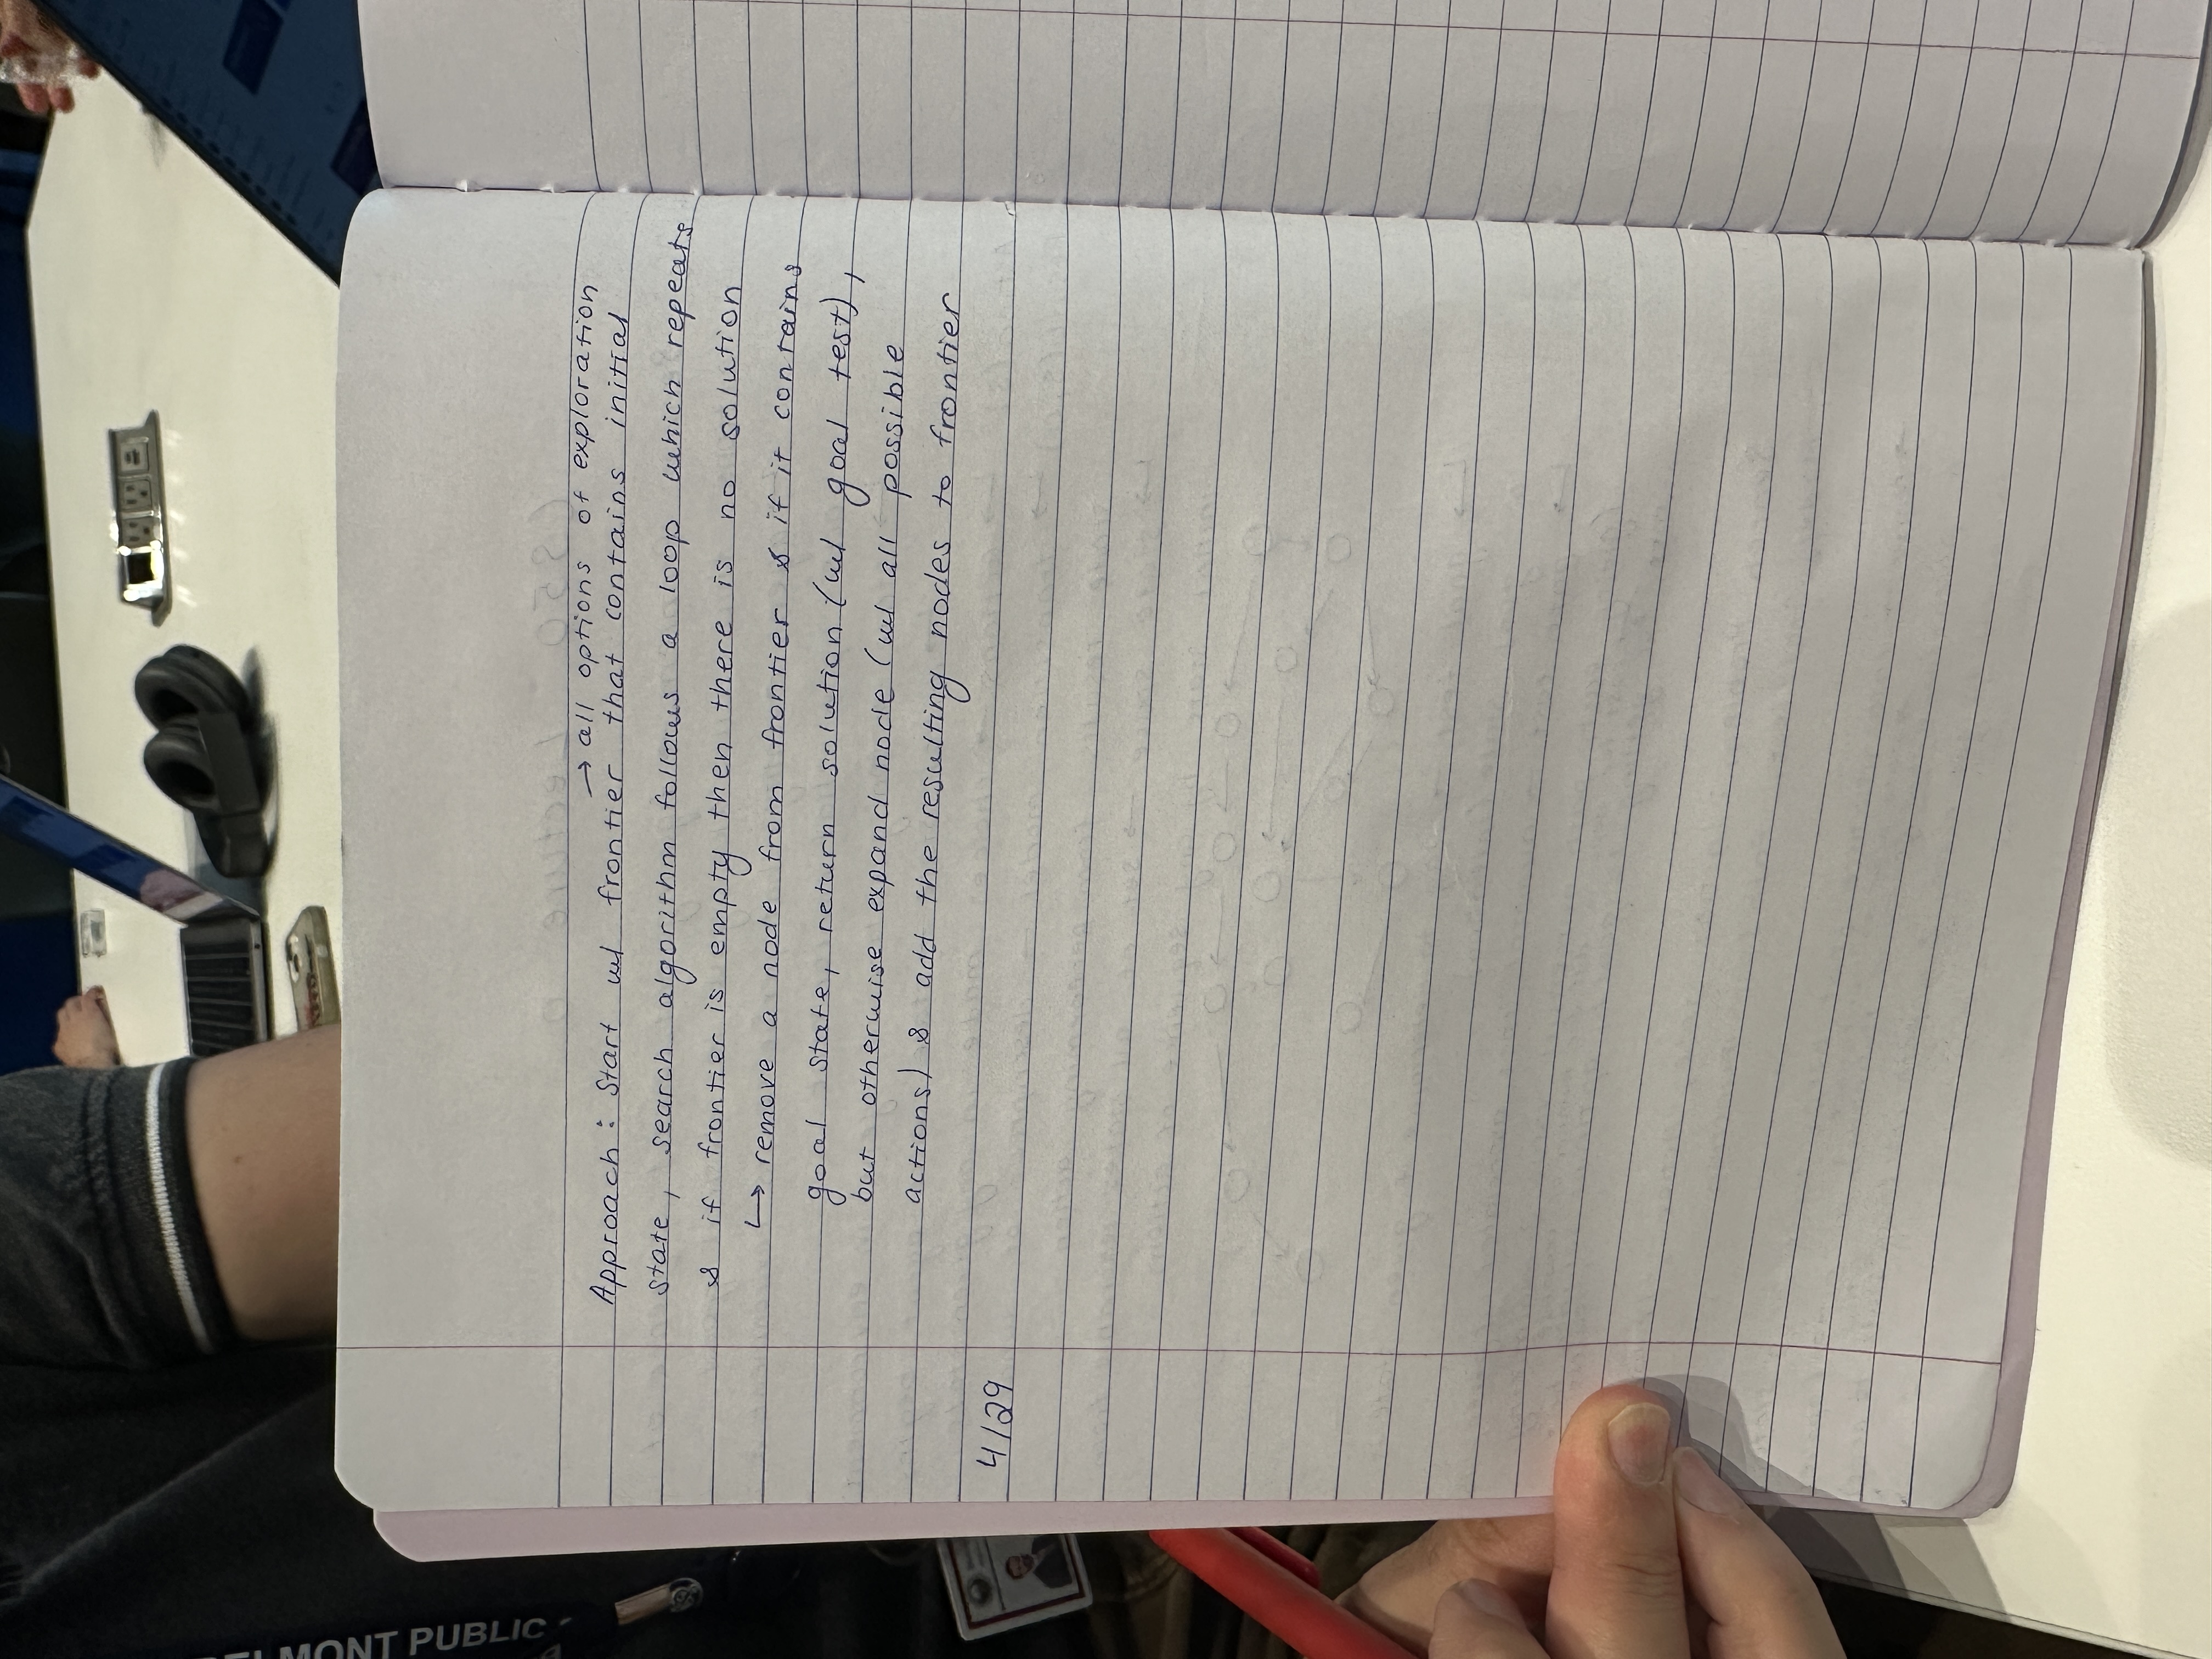 MONT PUBLIC
CS50 Lecture 0
→ all options of exploration
Approach: Start w/ frontier that contains initial
state, search algorithm follows a loop which repeats
& if frontier is empty then there is no solution
↳ remove a node from frontier & if it contains
goal state, return solution (w/ goal test),
but otherwise expand node (w/ all possible
actions) & add the resulting nodes to frontier
4/29